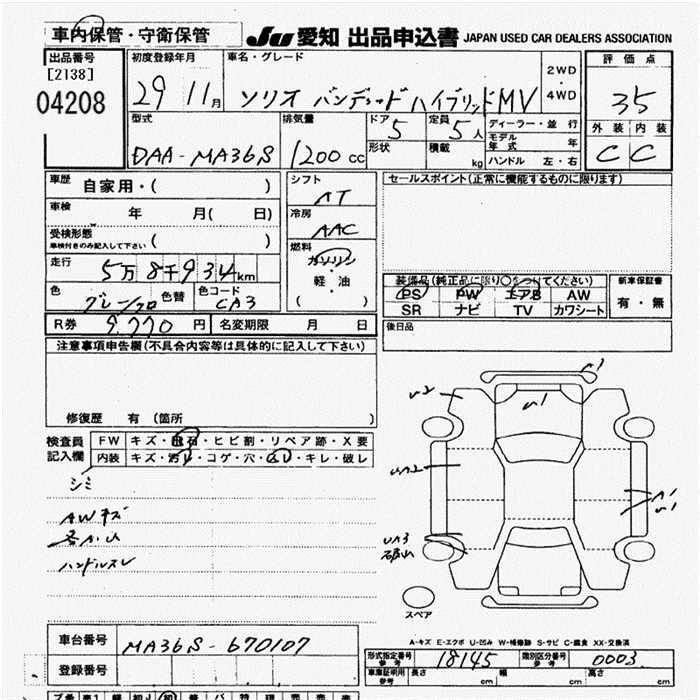 車内保管・守衛保管
JU 愛知 出品申込書 JAPAN USED CAR DEALERS ASSOCIATION
出品番号
[2138]
04208
初度登録年月
29 11月
車名・グレード
ソリオ バンディット ハイブリッドMV
2WD
4WD
評価点
35
外装 内装
C C
型式
DAA-MA36S
排気量
1200 cc
ドア 5
形状
定員 5人
積載 kg
ディーラー・並行
モデル年式 年
ハンドル 左・右
車歴 自家用・( )
車検 年 月( 日)
受検形態
車検付きのみ記入して下さい ( )
走行 5万8千934km
色 グレー/クロ 色替 色コード CA3
シフト
AT
冷房
AAC
燃料
ガソリン
軽・油
( )
セールスポイント(正常に機能するものに限ります)
装備品(純正品に限り〇をつけてください)
PS PW エアB AW
SR ナビ TV カワシート
新車保証書
有・無
R券 9,770 円 名変期限 月 日
後日品
注意事項申告欄(不具合内容等は具体的に記入して下さい)
修復歴 有 (箇所 )
検査員記入欄
FW キズ・飛石・ヒビ割・リペア跡・X要
内装 キズ・汚レ・コゲ・穴・スレ・キレ・破レ
シミ
AWキズ
各A・U
ハンドルスレ
U2
U1
UA2
A1
U1
UA3
スペア
A-キズ E-エクボ U-凹み W-補修跡 S-サビ C-腐食 XX-交換済
車台番号 MA36S-670107
登録番号
形式指定番号 参考 18145 類別区分番号 参考 0003
車庫証明用 参考 長さ cm 幅 cm 高さ cm